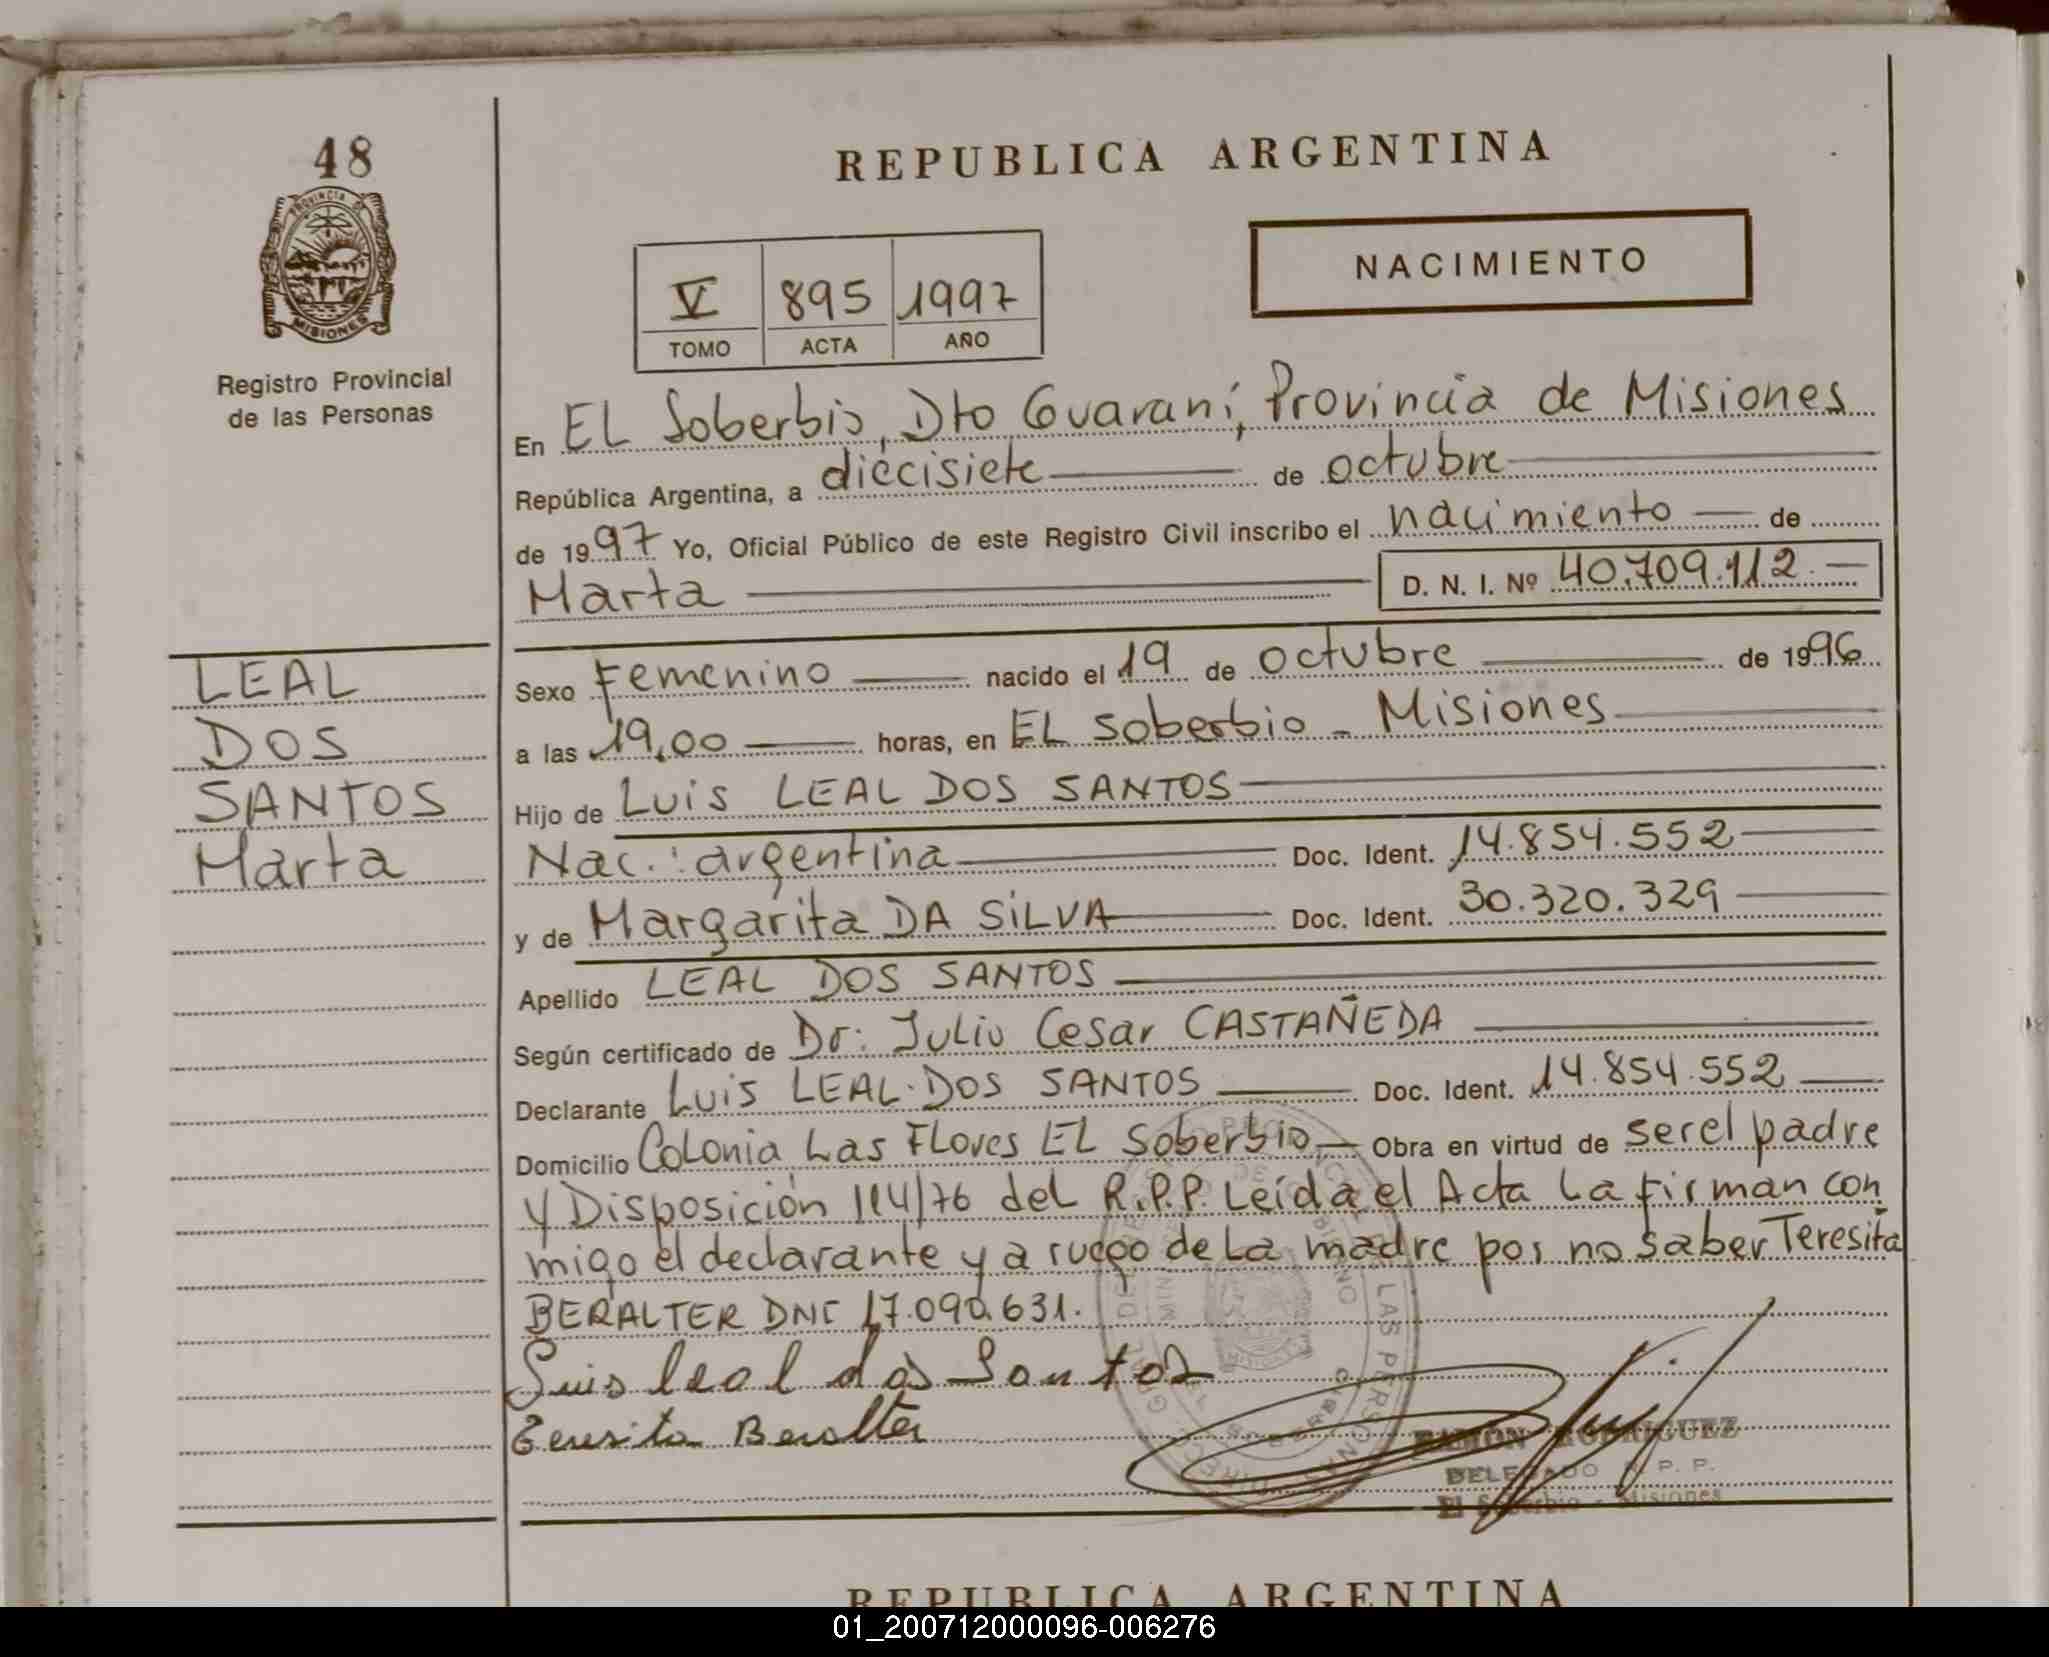 48
PROVINCIA DE
MISIONES
Registro Provincial
de las Personas
REPUBLICA ARGENTINA
NACIMIENTO
V 895 1997
TOMO ACTA AÑO
En EL Soberbio, Dto Guaraní, Provincia de Misiones
República Argentina, a diecisiete de octubre
de 1997 Yo, Oficial Público de este Registro Civil inscribo el nacimiento de
Marta D. N. I. Nº 40.709.112.
LEAL
DOS
SANTOS
Marta
Sexo Femenino nacido el 19 de octubre de 1996
a las 19,00 horas, en EL Soberbio - Misiones
Hijo de Luis LEAL DOS SANTOS
Nac.: argentina Doc. Ident. 14.854.552
y de Margarita DA SILVA Doc. Ident. 30.320.329
Apellido LEAL DOS SANTOS
Según certificado de Dr: Julio Cesar CASTAÑEDA
Declarante Luis LEAL DOS SANTOS Doc. Ident. 14.854.552
Domicilio Colonia Las Flores EL Soberbio Obra en virtud de ser el padre
y Disposición 114/76 del R.P.P. Leída el Acta la firman con
migo el declarante y a ruego de la madre por no saber Teresita
BERALTER DNI 17.090.631.
Luis leal dos Santos
Teresita Beralter
RAMON RODRIGUEZ
DELEGADO R. P. P.
El Soberbio - Misiones
REPUBLICA ARGENTINA
01_200712000096-006276